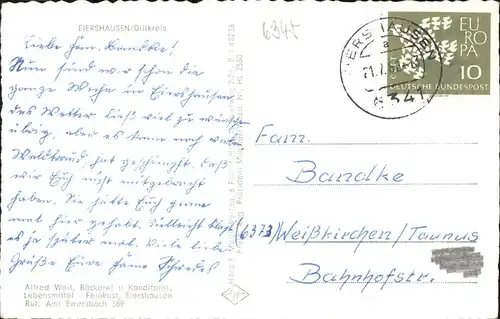 EIERSHAUSEN/Dillkreis
6345
Liebe Fam. Bandke!
Nun sind wir schon die
ganze Woche in Eiershausen
das Wetter ließ viel zu wünschen
übrig, aber es
Waldstrand hat geschimpft, daß
wir Euch nicht mitgebracht
haben. Sie hätte Euch gerne
mal hier gehabt. Vielleicht klapt
es ja später mal. Viele liebe
Grüße Eure Fam.
Alfred Weil, Bäckerei u. Konditorei,
Lebensmittel - Feinkost, Eiershausen
Ruf: Amt Ewersbach 389
EUROPA
10
DEUTSCHE BUNDESPOST
HAUSEN
a
Fam.
Bandke
6373 Weißkirchen/Taunus
Bahnhofstr.